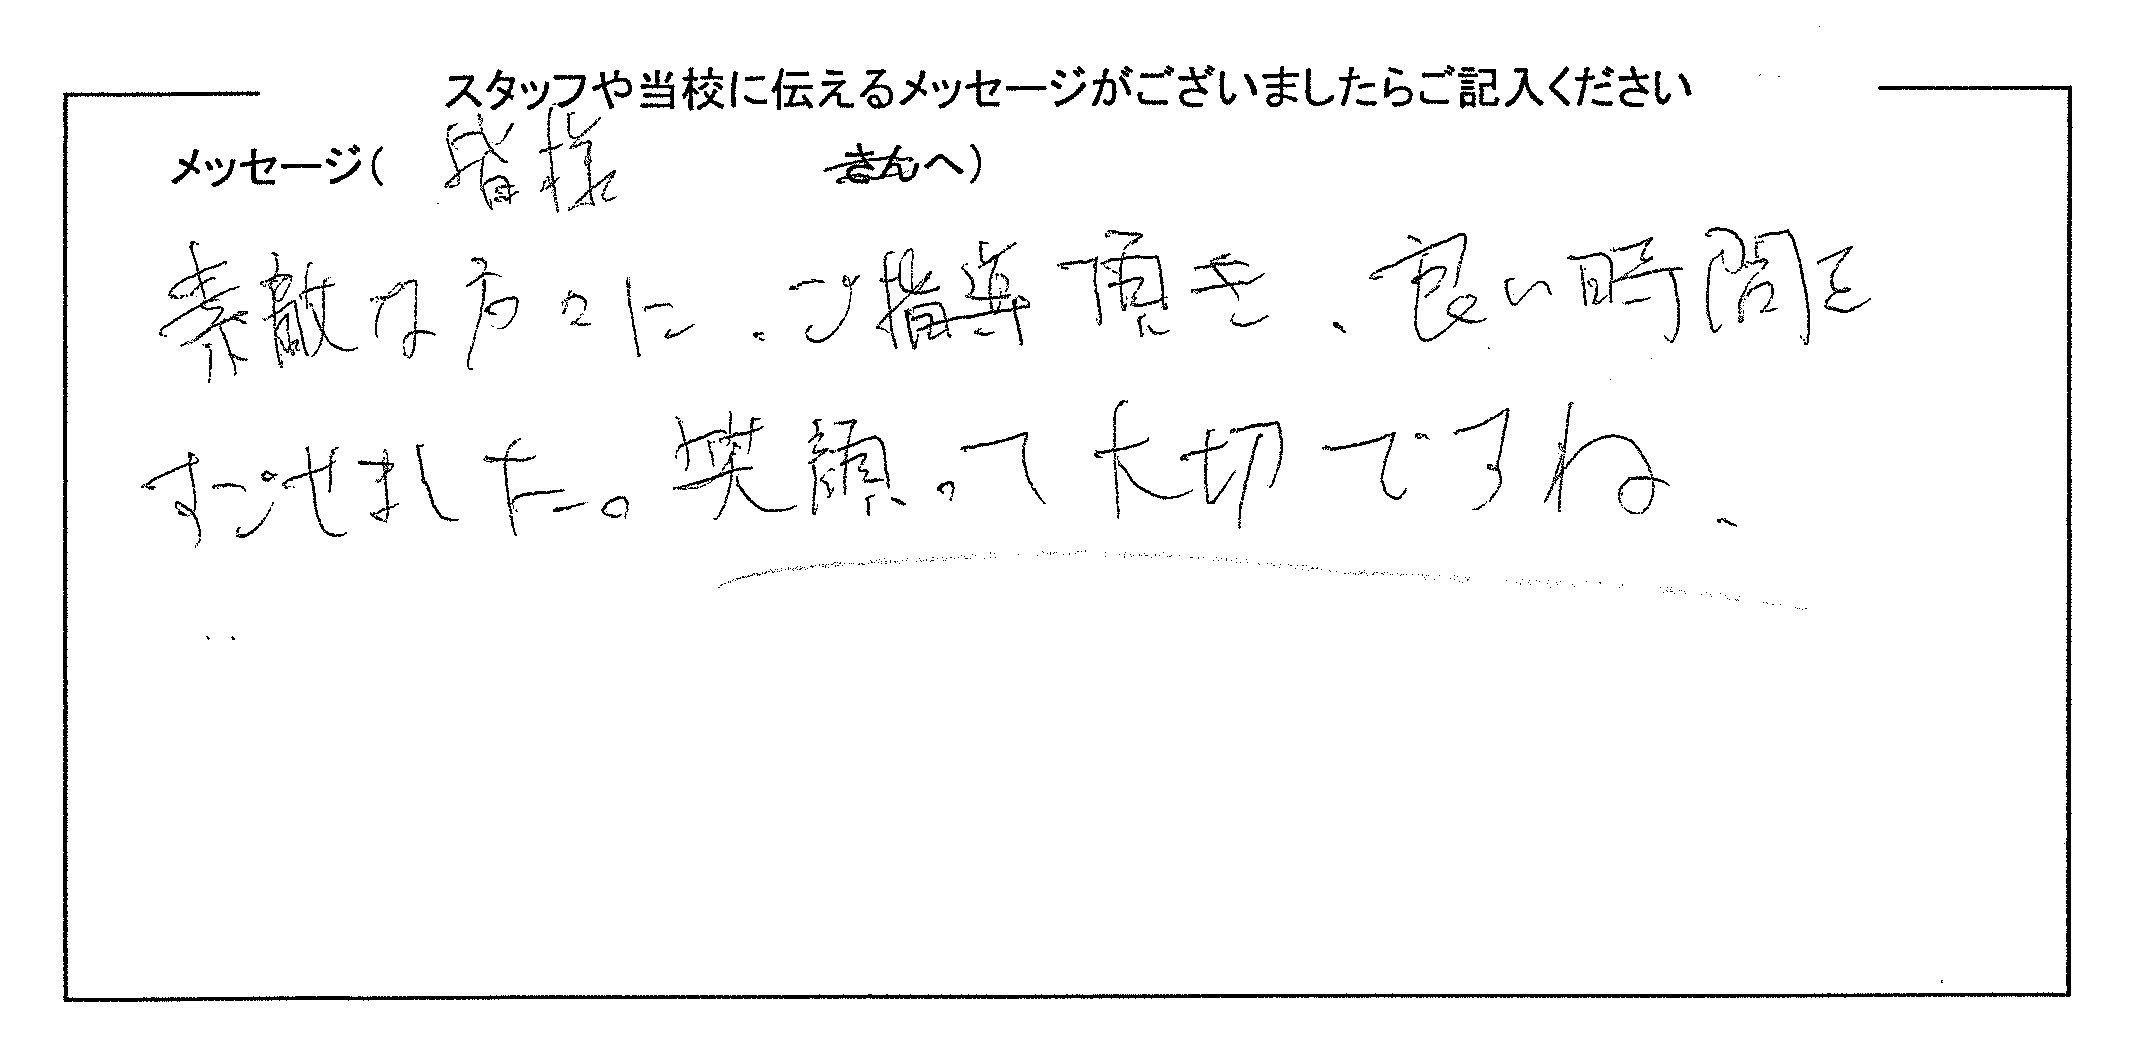 スタッフや当校に伝えるメッセージがございましたらご記入ください
メッセージ( 皆様 さんへ)
素敵な方々に、ご指導頂き、良い時間を
すごせました。笑顔って大切ですね、